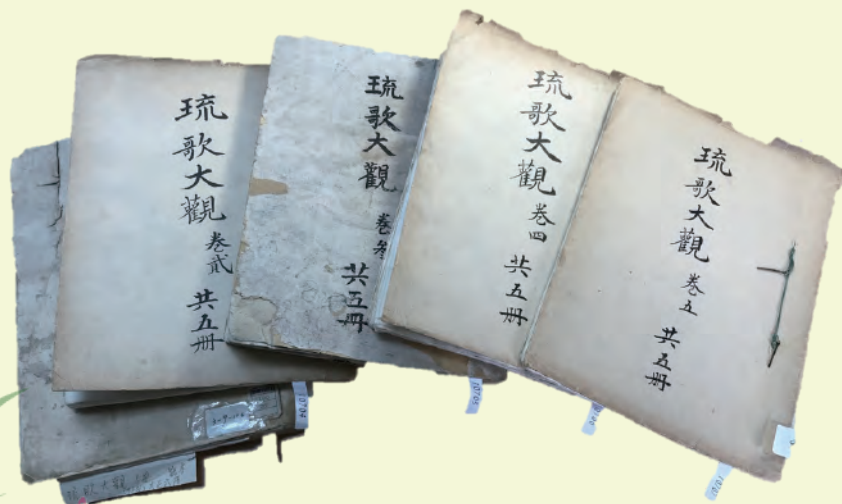 琉歌大觀
卷貳
共五册
琉歌大觀
卷參
共五册
琉歌大觀
卷四
共五册
琉歌大觀
卷五
共五册
琉歌大觀